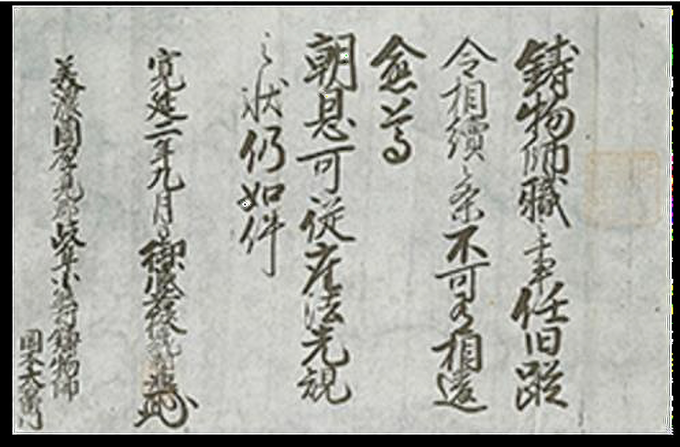 鋳物師職之事任旧蹤
令相續之条不可有相違
愈茑
朝恩可従座法先規
之状仍如件
寛延二年九月日御蔵
美濃國厚見郡岐阜小熊村鋳物師
岡本太右衛門